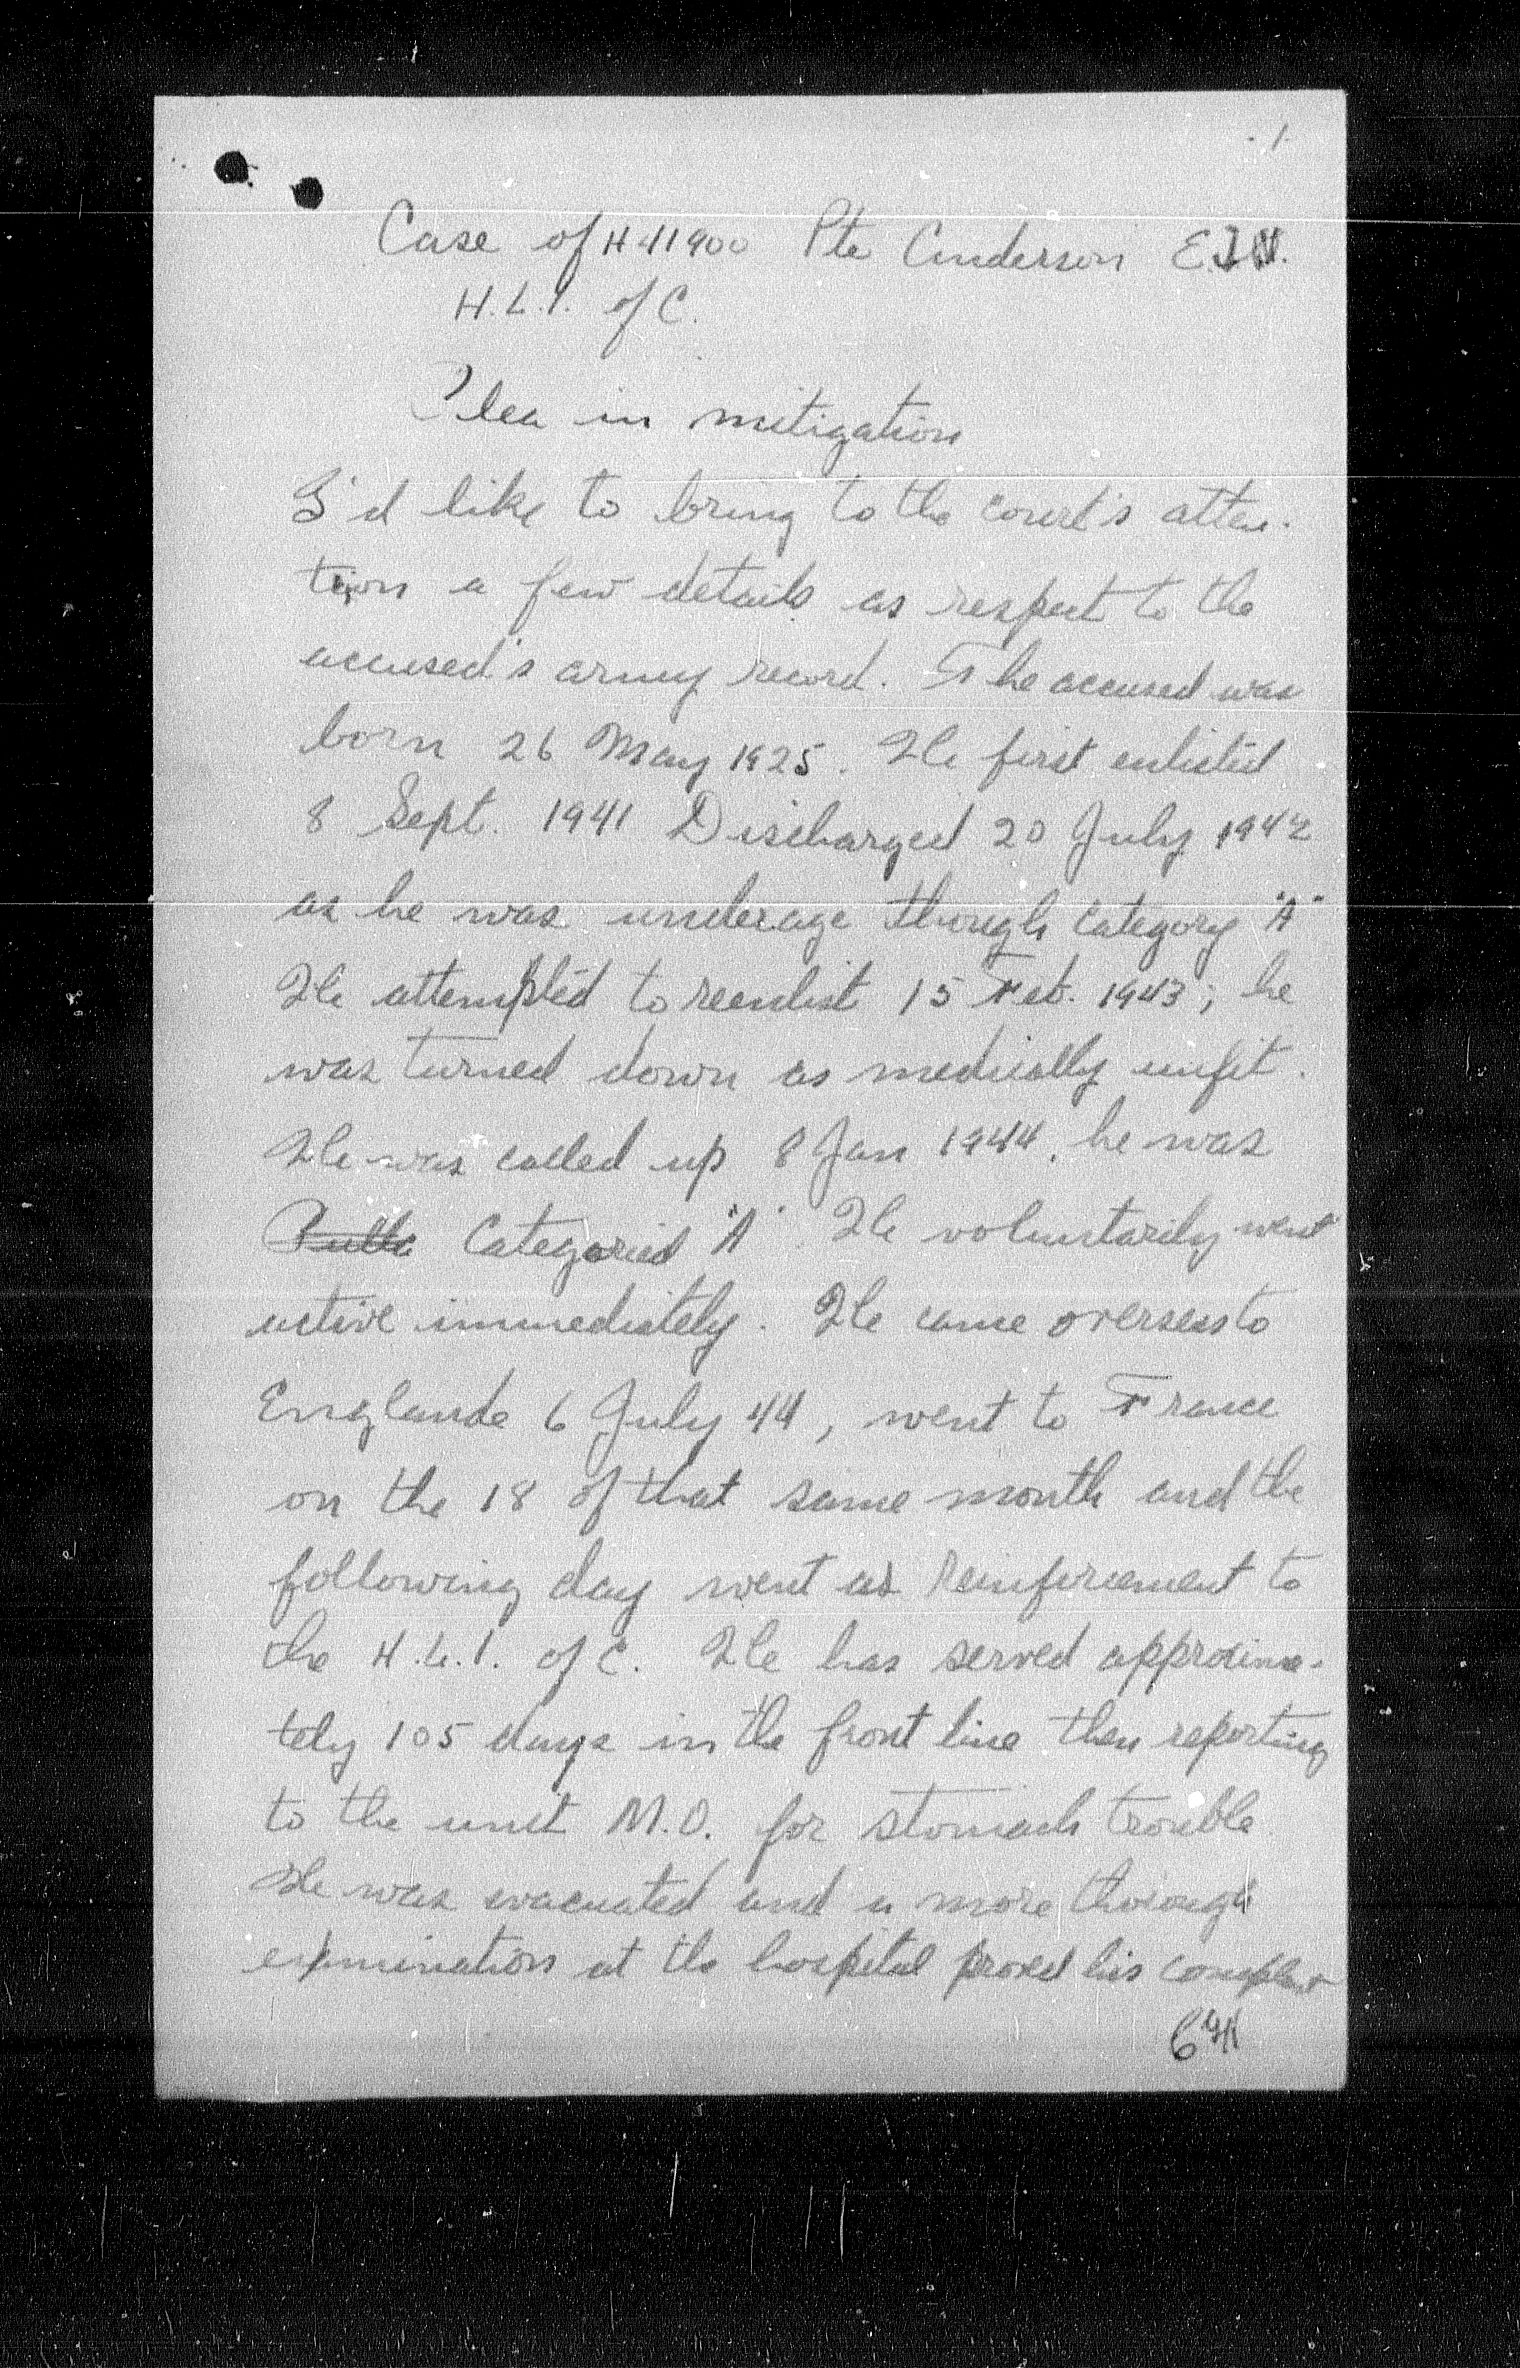 . 1.
Case of H 41900 Pte Anderson E.
H.L.I. of C.
Plea in mitigation
I'd like to bring to the court's atten-
tion a few details as respect to the
accused's army record. The accused was
born 26 May 1925. He first enlisted
8 Sept. 1941 Discharged 20 July 1942
as he was underage though category "A"
He attempted to reenlist 15 Feb. 1943; he
was turned down as medically unfit.
He was called up 8 Jan 1944. he was
Categoried "A". He voluntarily went
active immediately. He came overseas to
Englande 6 July 44, went to France
on the 18 of that same month and the
following day went as Reinforcement to
the H.L.I. of C. He has served approxima-
tely 105 days in the front line then reporting
to the unit M.O. for stomach trouble
He was evacuated and a more through
examination at the hospital proved his complaint